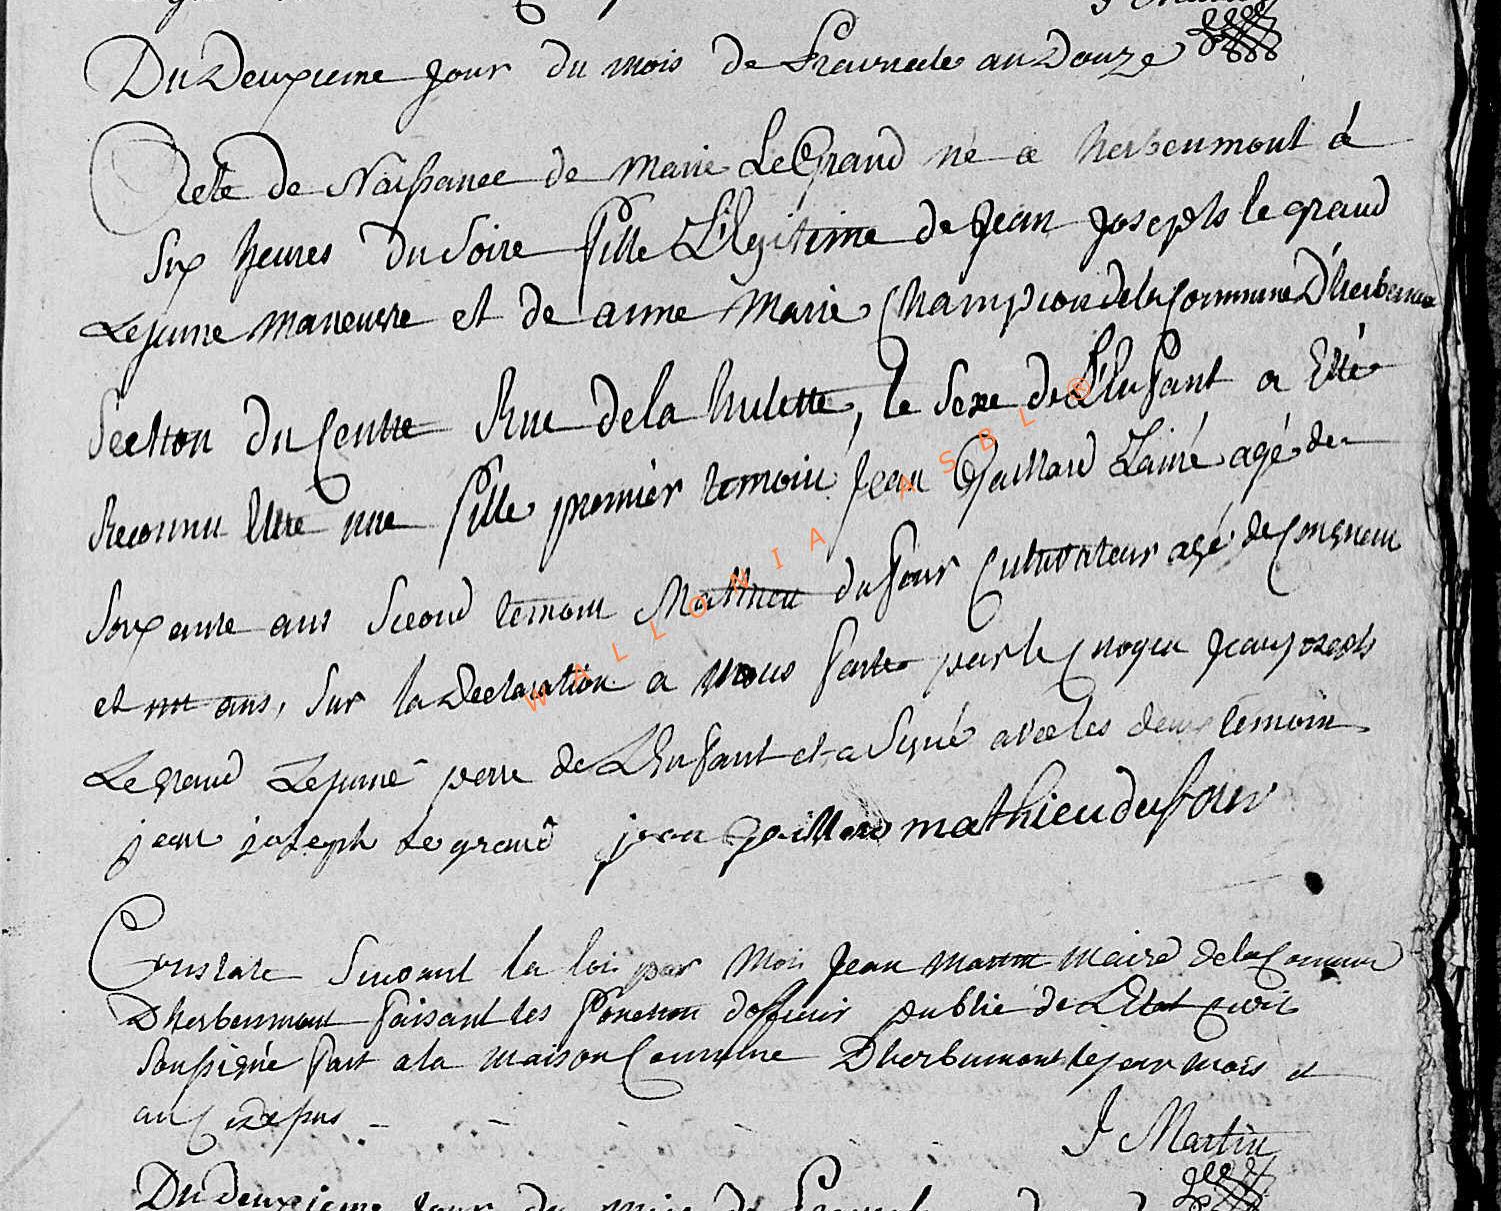 J Martin
Du Deuxieme Jour du mois de andouze
Acte de Naissance de Marie Le Grand né a herbeumont á
Six heures Du Soire fille Légitime de Jean Josephs le grand
Lejeune maneuvre et de anne Marie Champion dela Commune D'herbeumont
Section du Centre Rue dela hulette, le Sexe de L'Enfant a Etté
Reconnu Ettre une fille premiér temoin Jean Gaillard L'ainé agé de
Soixante ans Second temoin Mathieu dufour Cultivateur agé de
et ans, Sur la Declaration a Nous faite par le Jean josephs
Legrand Lejeune perre de L'Enfant et a Signé avec les deux temoin
jean joseph Le grand jean gaillard mathieu dufour
Constaté Suivant la loi par Moi Jean Martin Maire dela Commune
Dherbeumont faisant les fonction dofficier public de L'Etat Civil
Soussigné fait a la maison Commune Dherbeumont le jour mois et
an Cidessus
J Martin
Du deuxieme Jour du mois de
WALLONIA ASBL ®